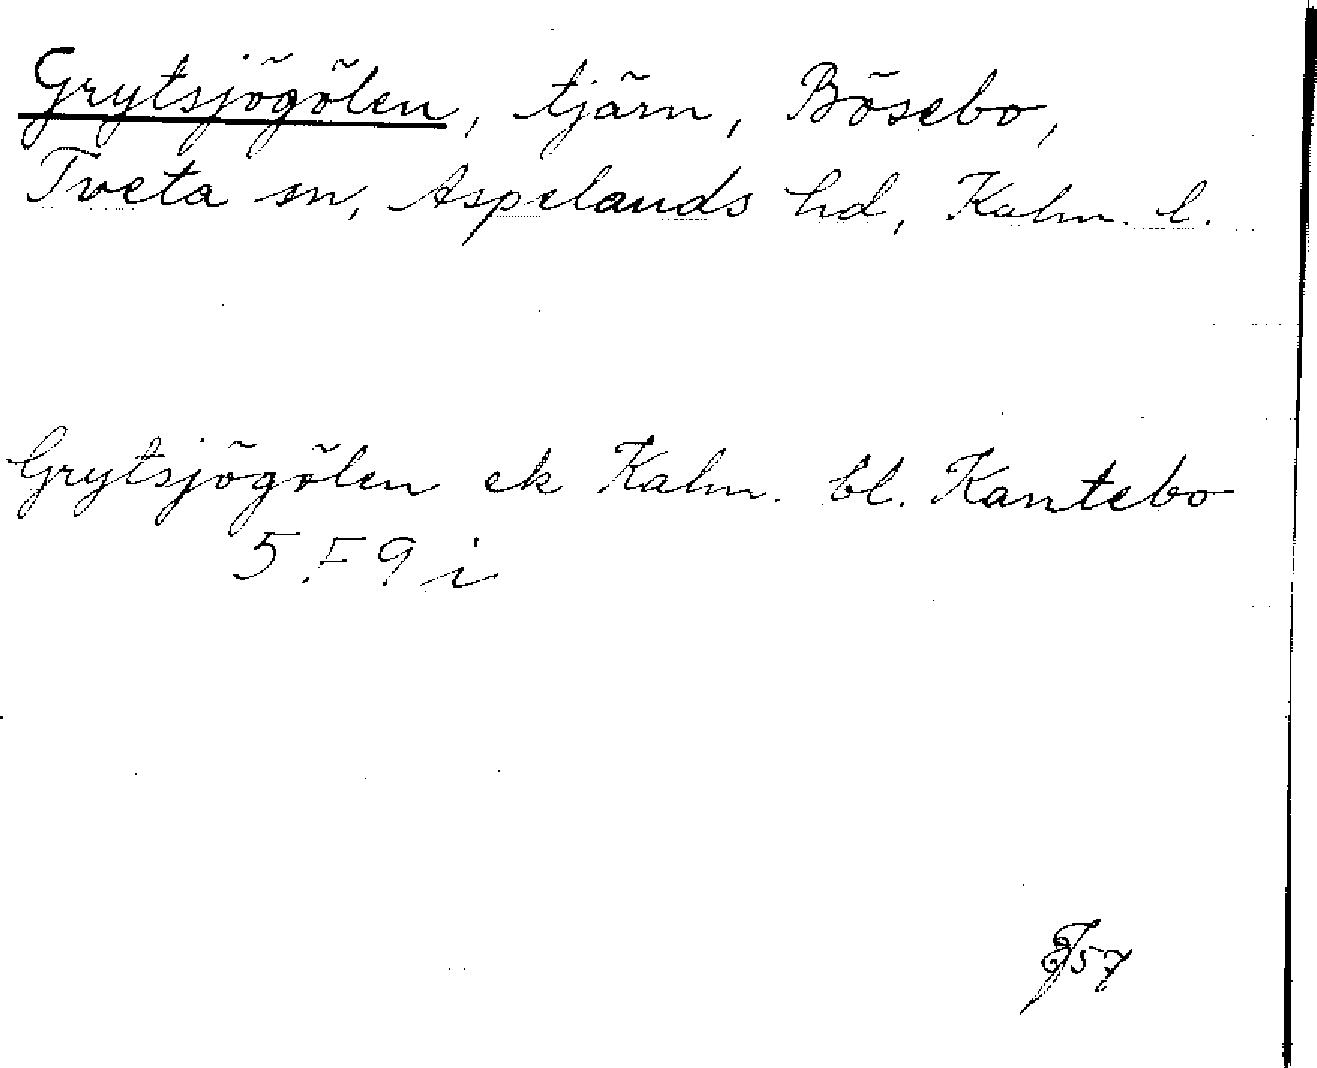 Grytsjögölen, tjärn, Bösebo,
Tveta sn, Aspelands hd, Kalm. l.
Grytsjögölen ek Kalm. bl. Kantebo
5 F 9 i
57